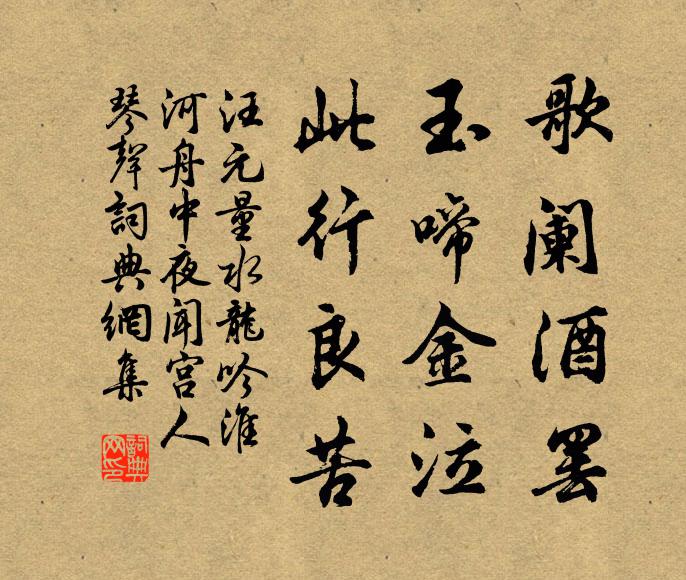 歌阑酒罢
玉啼金泣
此行良苦
汪元量水龍吟淮
河舟中夜闻宫人
琴聲詞典網集
詞典
网印